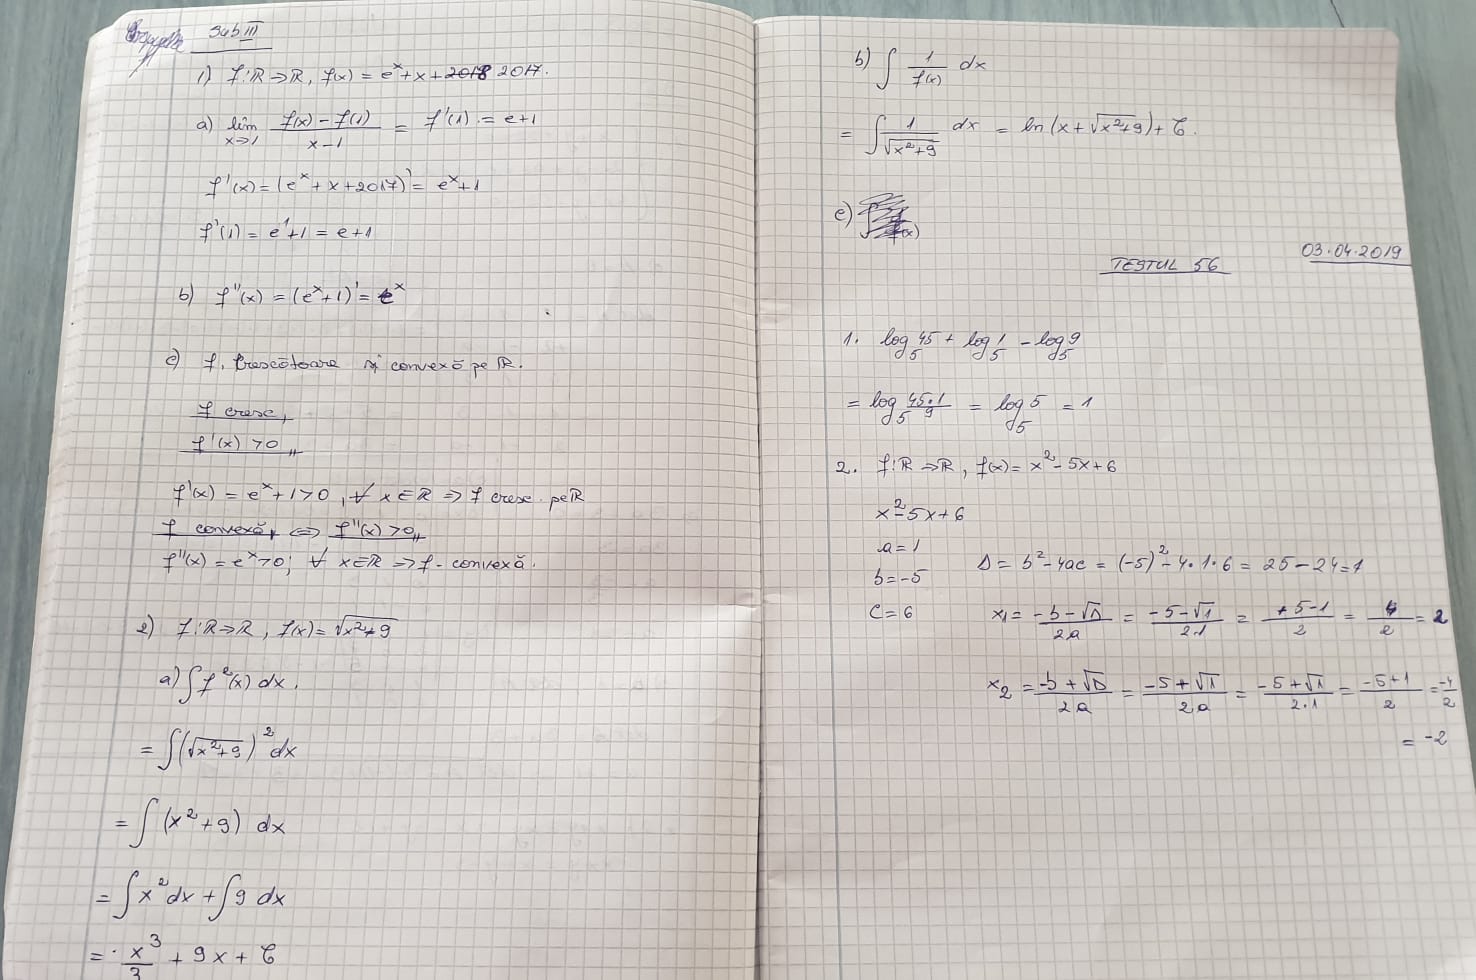 Sub III
1) f:R→R, f(x) = e^x + x + 2018 2017.
a) lim x→1 (f(x) - f(1))/(x-1) = f'(1) = e+1
f'(x) = (e^x + x + 2017)' = e^x + 1
f'(1) = e^1 + 1 = e+1
b) f''(x) = (e^x + 1)' = e^x
c) f. crescătoare și convexă pe R.
f cresc,
f'(x) > 0
f'(x) = e^x + 1 > 0, ∀ x ∈ R ⇒ f cresc. pe R
f convexă, ⇔ f''(x) > 0
f''(x) = e^x > 0; ∀ x ∈ R ⇒ f - convexă.
2) f:R→R, f(x) = √(x²+9)
a) ∫ f²(x) dx.
= ∫ (√(x²+9))² dx
= ∫ (x²+9) dx
= ∫ x² dx + ∫ 9 dx
= x³/3 + 9x + C
b) ∫ 1/f(x) dx
= ∫ 1/√(x²+9) dx = ln(x + √(x²+9)) + C.
c)
03.04.2019
TESTUL 56
1. log₅ 45 + log₅ 1 - log₅ 9
= log₅ (45·1)/9 = log₅ 5 = 1
2. f:R→R, f(x) = x² - 5x + 6
x² - 5x + 6
a = 1
b = -5
c = 6
Δ = b² - 4ac = (-5)² - 4·1·6 = 25 - 24 = 1
x₁ = (-b - √Δ)/2a = (-5 - √1)/2·1 = (+5 - 1)/2 = 4/2 = 2
x₂ = (-b + √Δ)/2a = (-5 + √1)/2a = (-5 + √1)/2·1 = (-5 + 1)/2 = -4/2
= -2